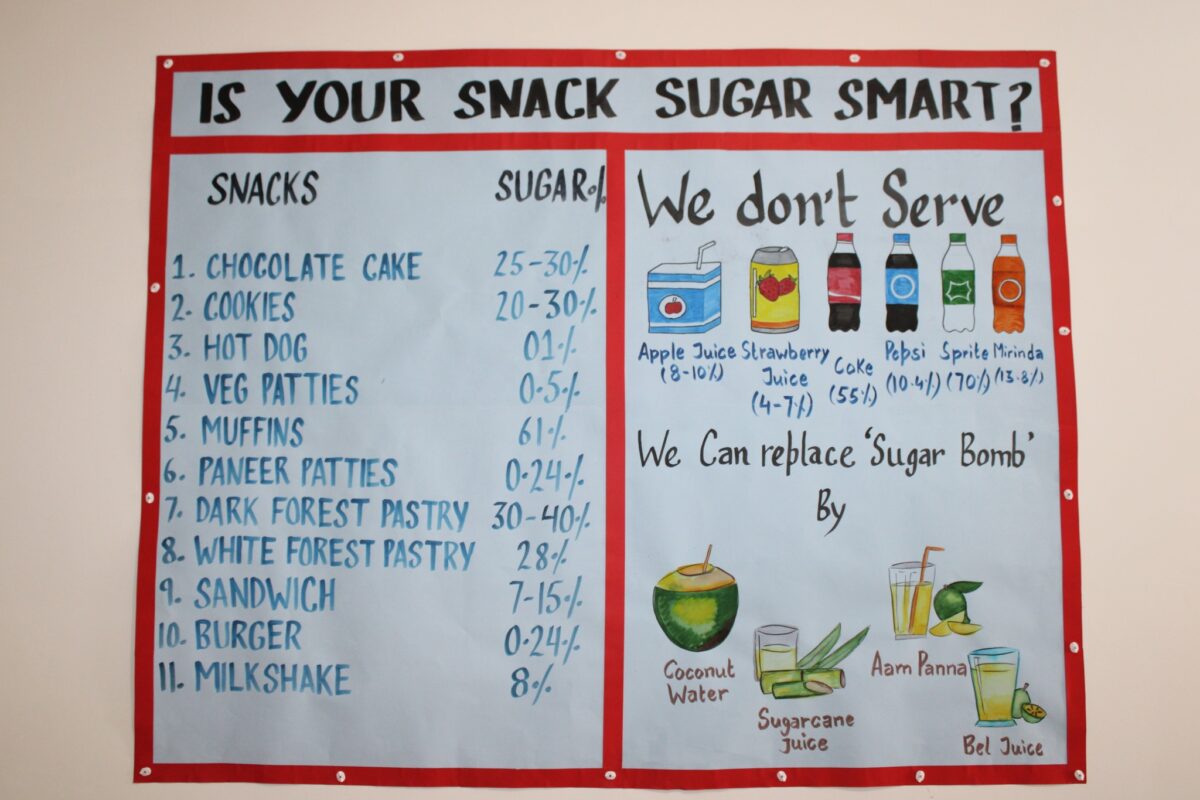 IS YOUR SNACK SUGAR SMART?
SNACKS SUGAR%
1. CHOCOLATE CAKE 25-30%
2. COOKIES 20-30%
3. HOT DOG 01%
4. VEG PATTIES 0.5%
5. MUFFINS 61%
6. PANEER PATTIES 0.24%
7. DARK FOREST PASTRY 30-40%
8. WHITE FOREST PASTRY 28%
9. SANDWICH 7-15%
10. BURGER 0.24%
11. MILKSHAKE 8%
We don't Serve
Apple Juice
(8-10%)
Strawberry
Juice
(4-7%)
Coke
(55%)
Pepsi
(10.4%)
Sprite
(70%)
Mirinda
(13.8%)
We Can replace 'Sugar Bomb'
By
Coconut
Water
Sugarcane
Juice
Aam Panna
Bel Juice